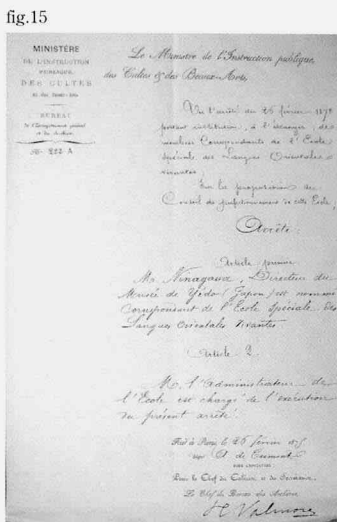 fig.15
MINISTÈRE
DE L'INSTRUCTION
PUBLIQUE
DES CULTES
BUREAU
Le Ministre de l'Instruction publique,
des Cultes & des Beaux-Arts,
Vu l'arrêté du 26 février 187
instituant, à l'étranger, des
membres Correspondants de l'Ecole
spéciale des Langues Orientales
vivantes
Sur la proposition du
Conseil de perfectionnement de cette Ecole,
Arrête:
Article premier
Mr. Ninagawa, Directeur du
Musée de Yédo (Japon) est nommé
Correspondant de l'Ecole Spéciale des
Langues Orientales Vivantes
Article 2
M. l'Administrateur de
l'Ecole est chargé de l'exécution
du présent arrêté.
Fait à Paris, le 26 février 187
A. de Cumont
Pour
Le Chef du
Valmore